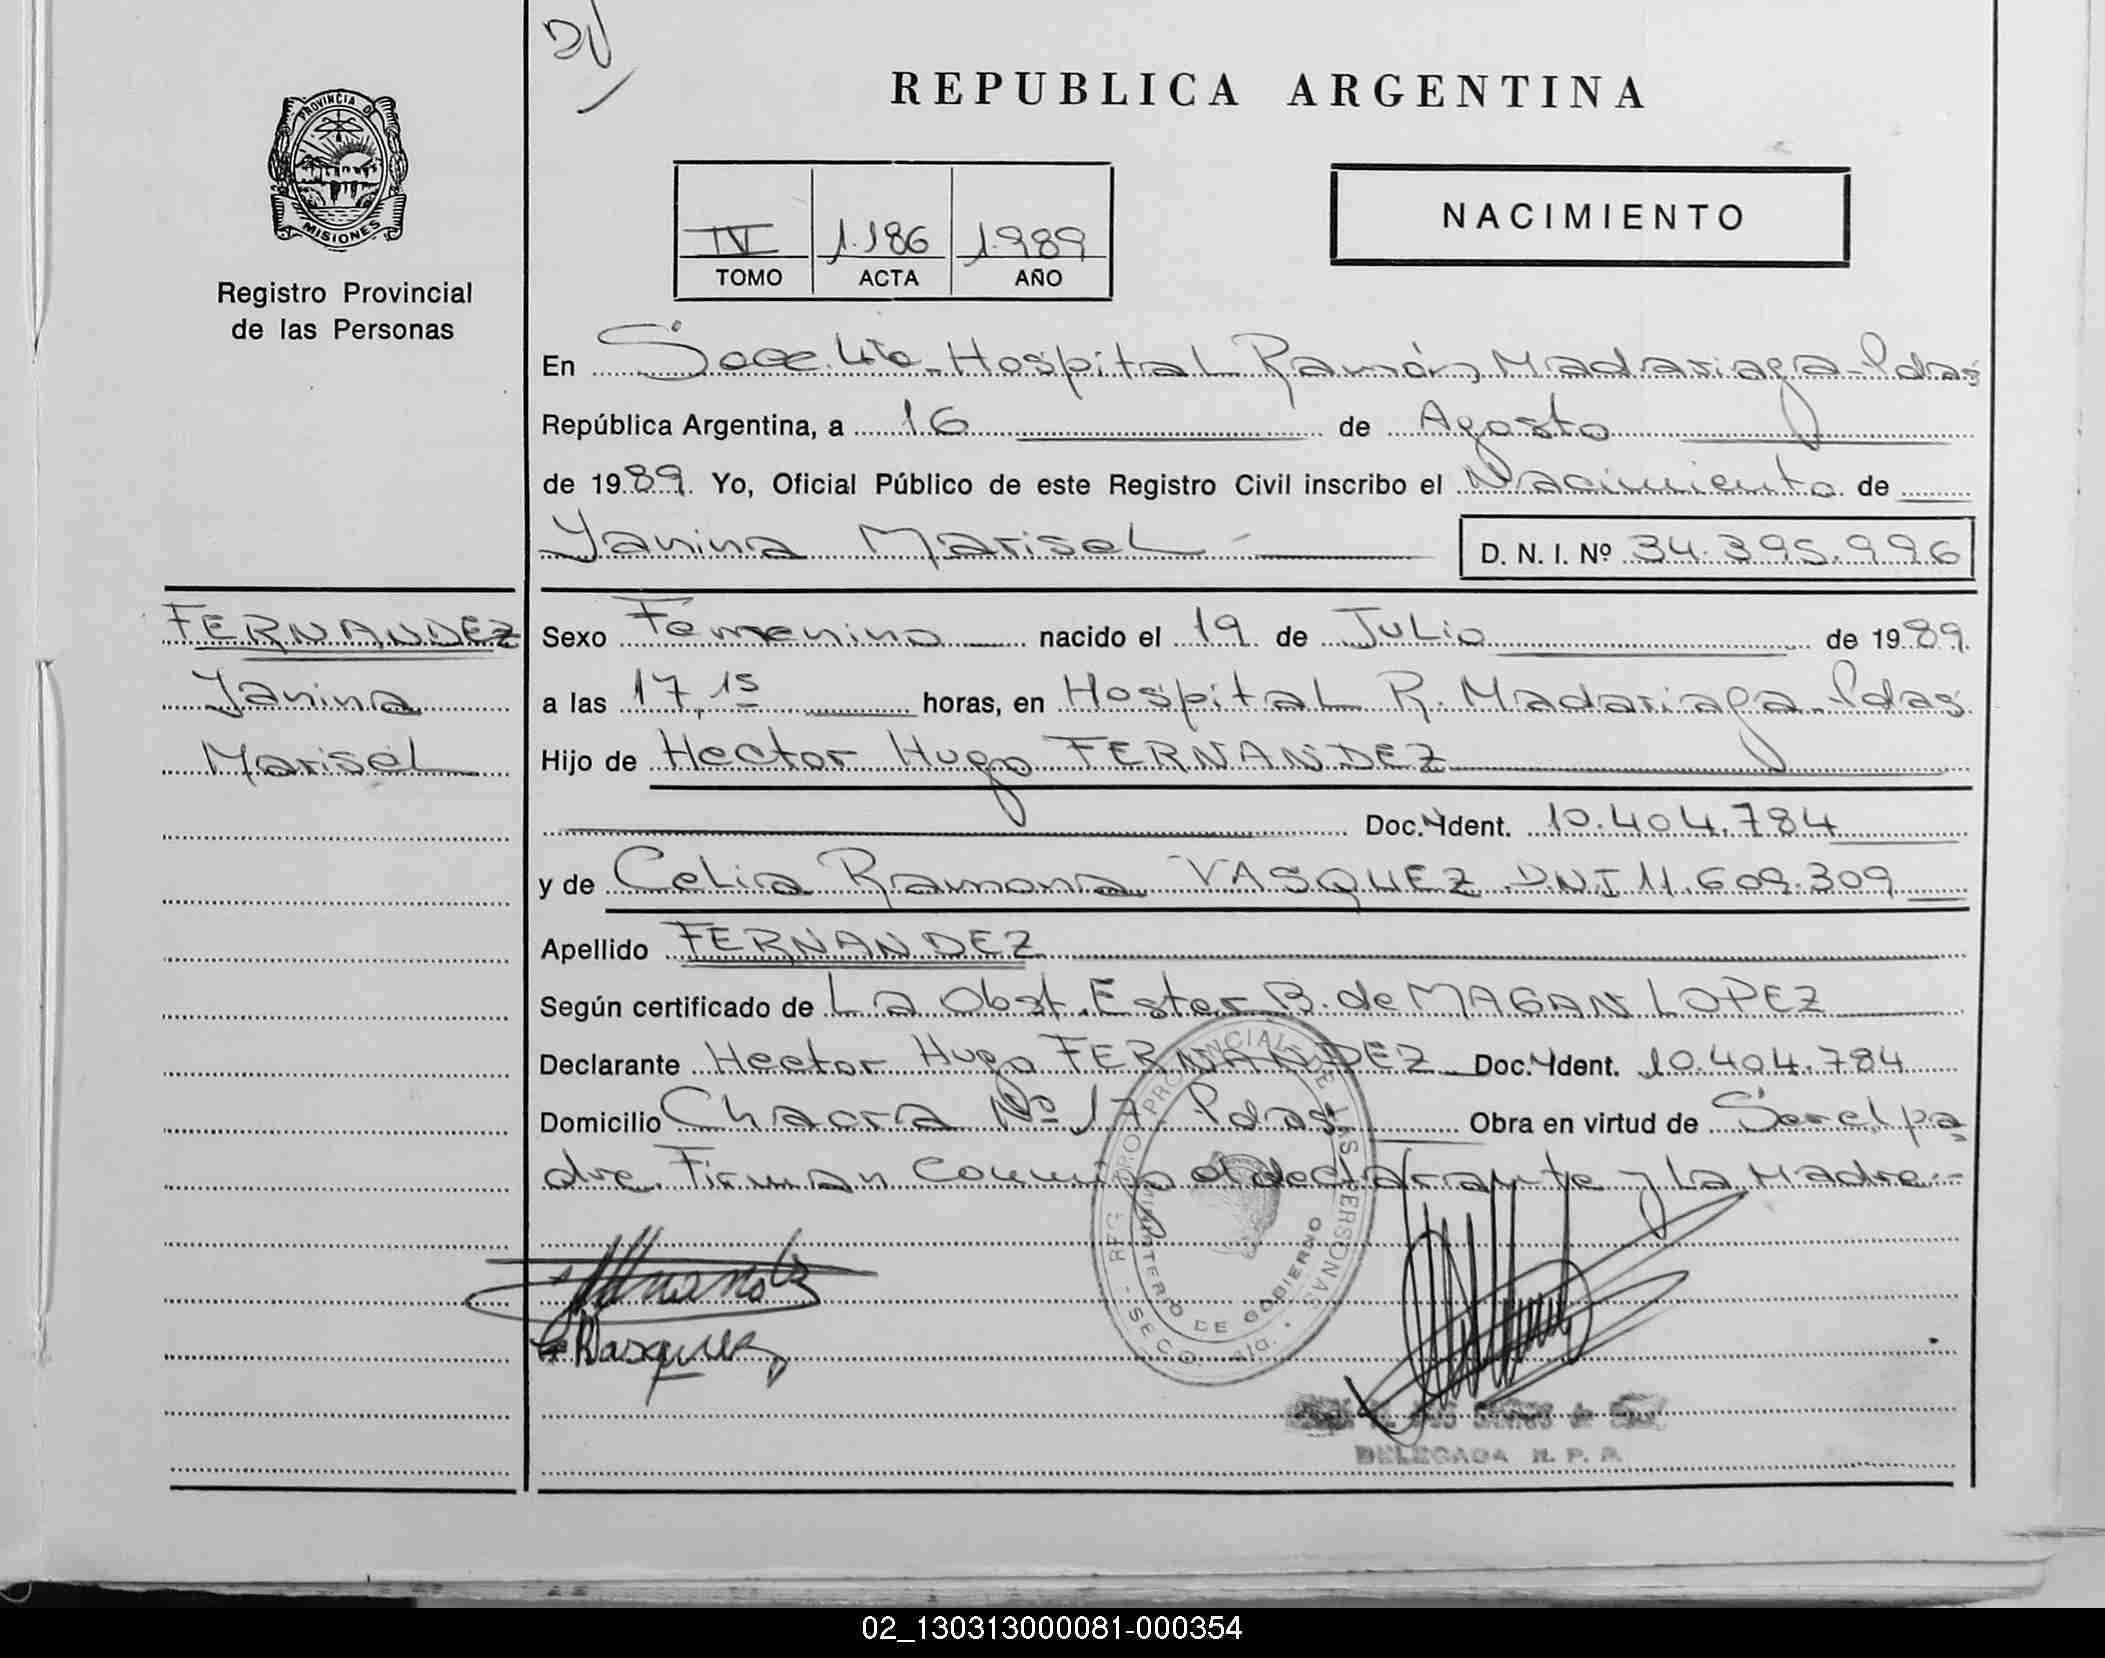 REPUBLICA ARGENTINA
PROVINCIA D
MISIONES
Registro Provincial
de las Personas
IV 1.186 1.989
TOMO ACTA AÑO
NACIMIENTO
En Hospital Ramón Madariaga - Pdas
República Argentina, a 16 de Agosto
de 1989. Yo, Oficial Público de este Registro Civil inscribo el Nacimiento de
Yanina Marisel D. N. I. Nº 34.395.996
FERNANDEZ
Yanina
Marisel
Sexo Femenino nacido el 19 de Julio de 1989.
a las 17,15 horas, en Hospital R. Madariaga - Pdas
Hijo de Hector Hugo FERNANDEZ
Doc. Ydent. 10.404.784
y de Celia Ramona VASQUEZ DNI 11.609.309
Apellido FERNANDEZ
Según certificado de La Obst. Ester B. de MAGAN LOPEZ
Declarante Hector Hugo FERNANDEZ Doc. Ydent. 10.404.784
Domicilio Chacra Nº 17 Pdas Obra en virtud de Ser el pa
dre. Firman Conmigo el declarante y La Madre -
REG PROVINCIAL DE LAS PERSONAS
MINISTERIO DE GOBIERNO
DELEGADA R. P. P.
02_130313000081-000354